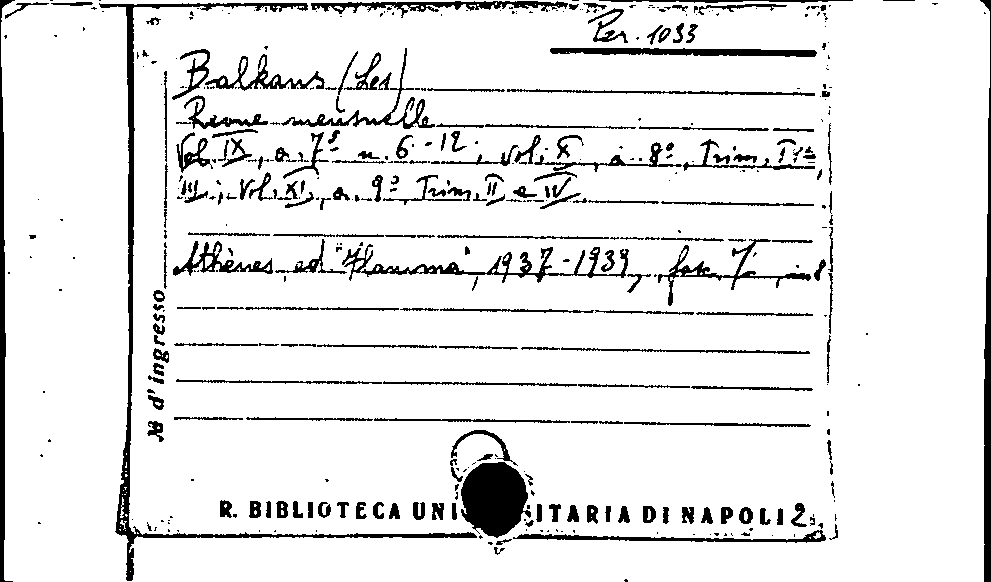 Per. 1033
Balkans (Les)
Revue mensuelle
Vol. IX, a. 7º n. 6-12; vol. X, a. 8º, Trim.
III; Vol. XI, a. 9º Trim. II e IV.
Athènes, ed. "Flamma", 1937-1939, fasc. 7, in 8
№ d'ingresso
R. BIBLIOTECA UNI SITARIA DI NAPOLI 2